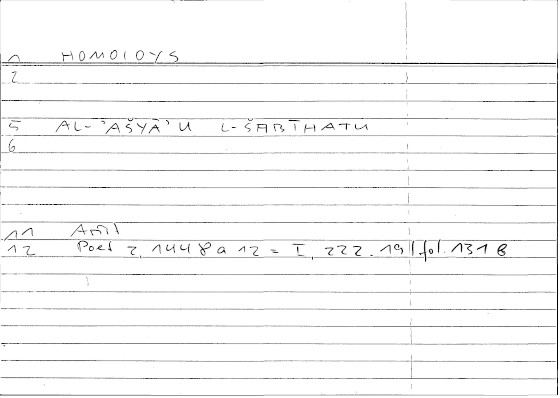 1 HOMOIOYS
2
5 AL-'AŠYĀ'U L-ŠABĪHATU
6
11 Arist
12 Poet 2, 1448 a 12 = I, 222.19 | fol. 131 B